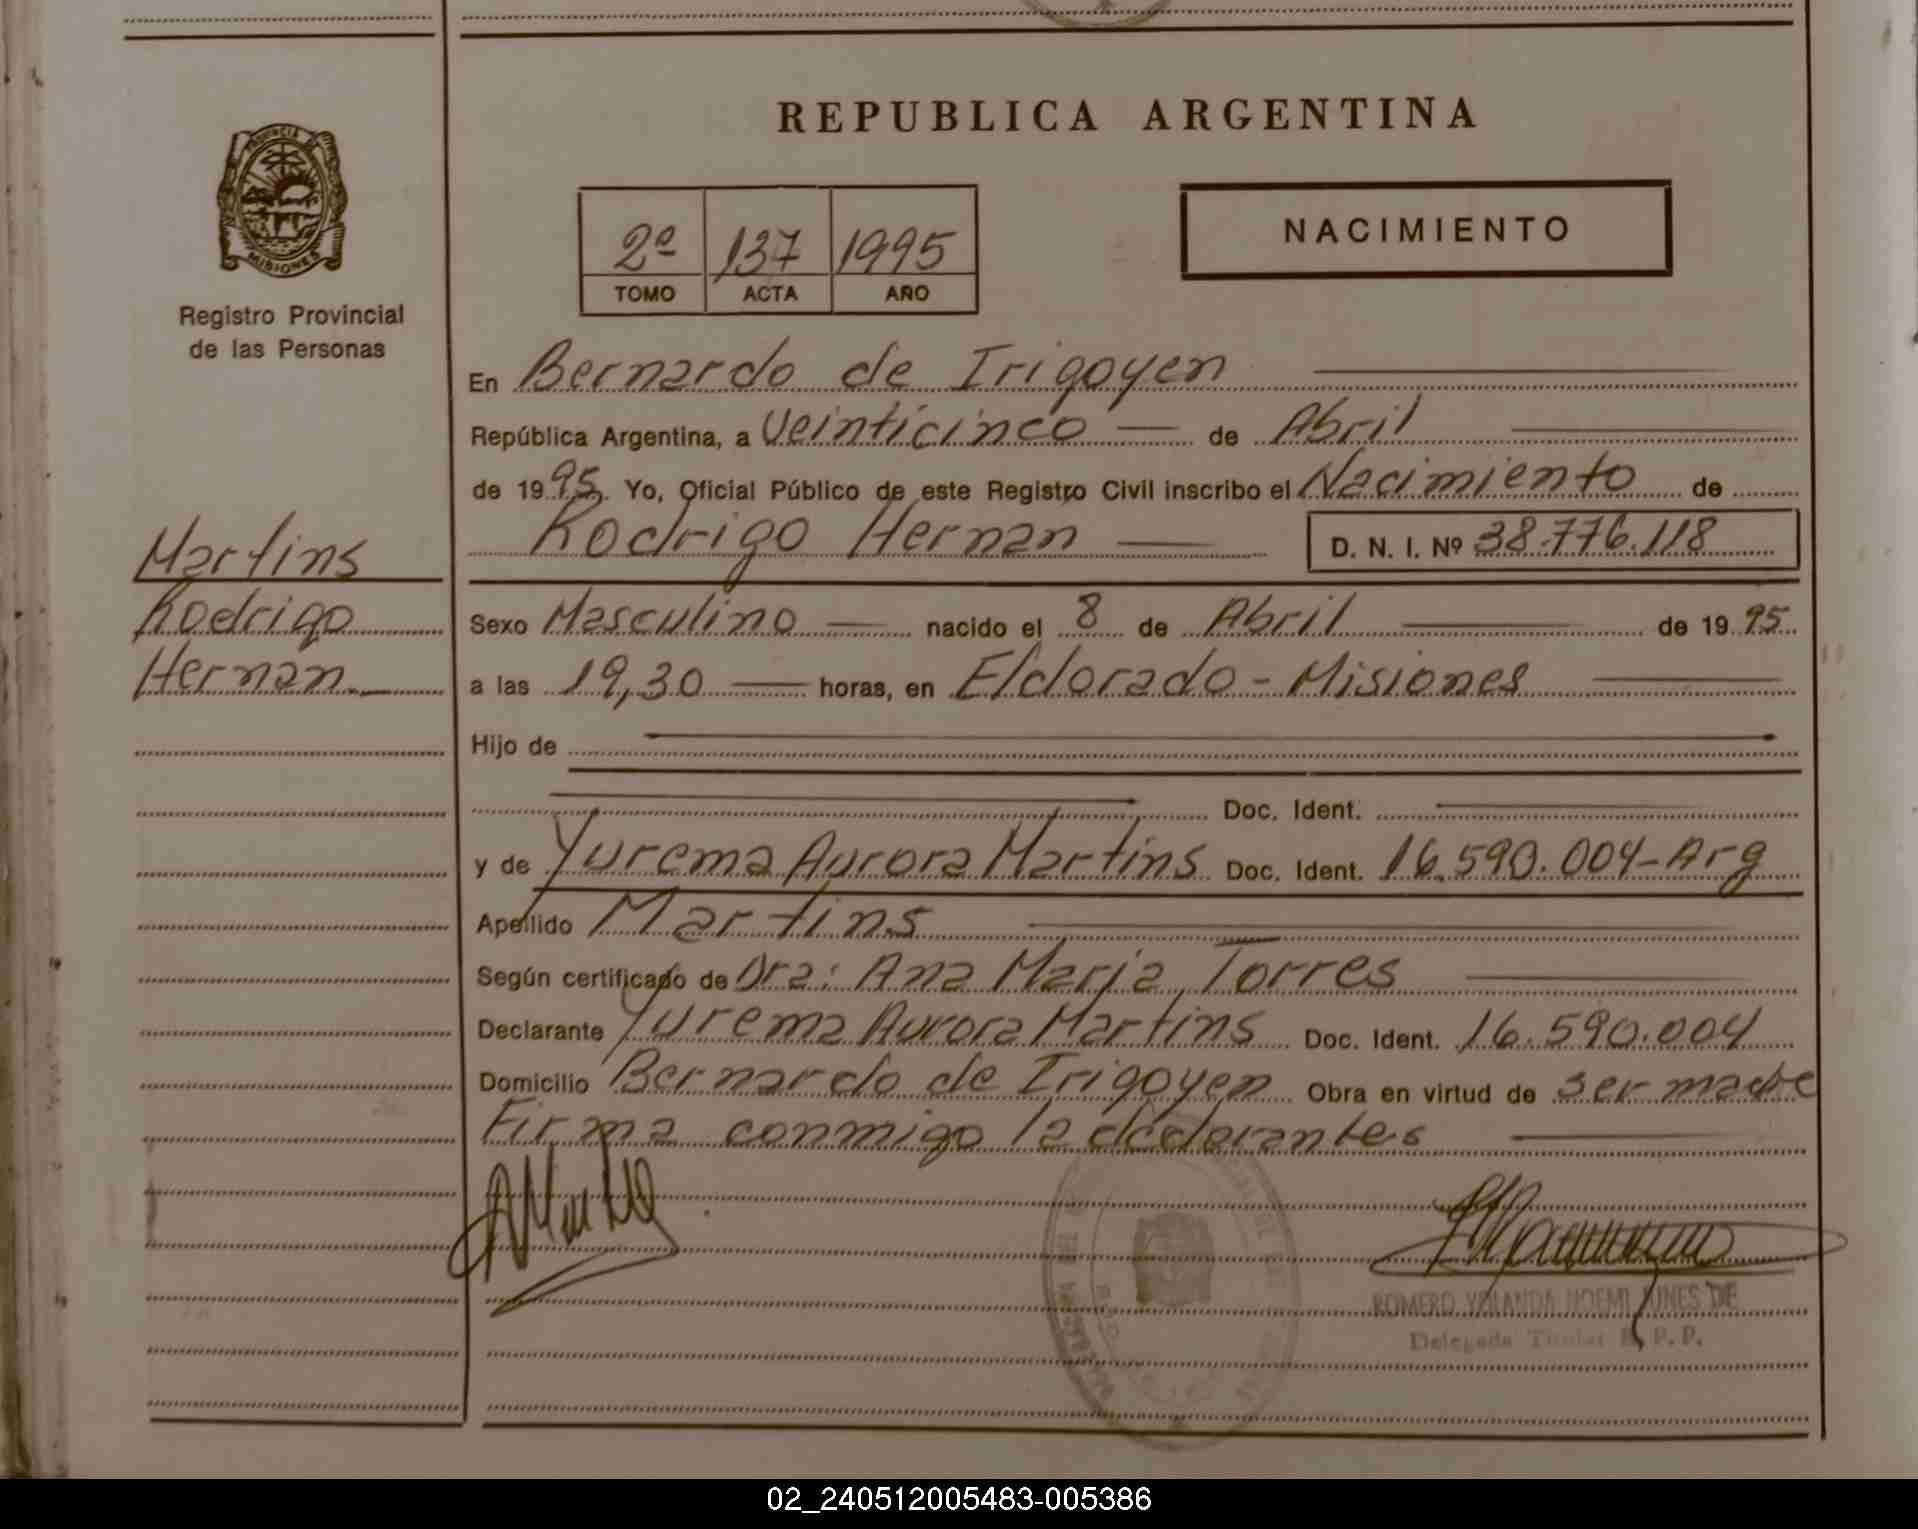 REPUBLICA ARGENTINA
PROVINCIA
MISIONES
Registro Provincial
de las Personas
2º 137 1995
TOMO ACTA AÑO
NACIMIENTO
En Bernardo de Irigoyen
República Argentina, a veinticinco — de Abril
de 1995. Yo, Oficial Público de este Registro Civil inscribo el Nacimiento de
Rodrigo Hernan — D. N. I. Nº 38.776.118
Martins
Rodrigo
Hernan. —
Sexo Masculino — nacido el 8 de Abril — de 1995
a las 19,30 — horas, en Eldorado - Misiones
Hijo de
Doc. Ident.
y de Yurema Aurora Martins Doc. Ident. 16.590.004-Arg
Apellido Martins
Según certificado de Dra: Ana Maria Torres
Declarante Yurema Aurora Martins Doc. Ident. 16.590.004
Domicilio Bernardo de Irigoyen Obra en virtud de ser madre
Firma conmigo la declarantes
ROMERO YOLANDA NOEMI NUNES DE
Delegada Titular R. P. P.
02_240512005483-005386